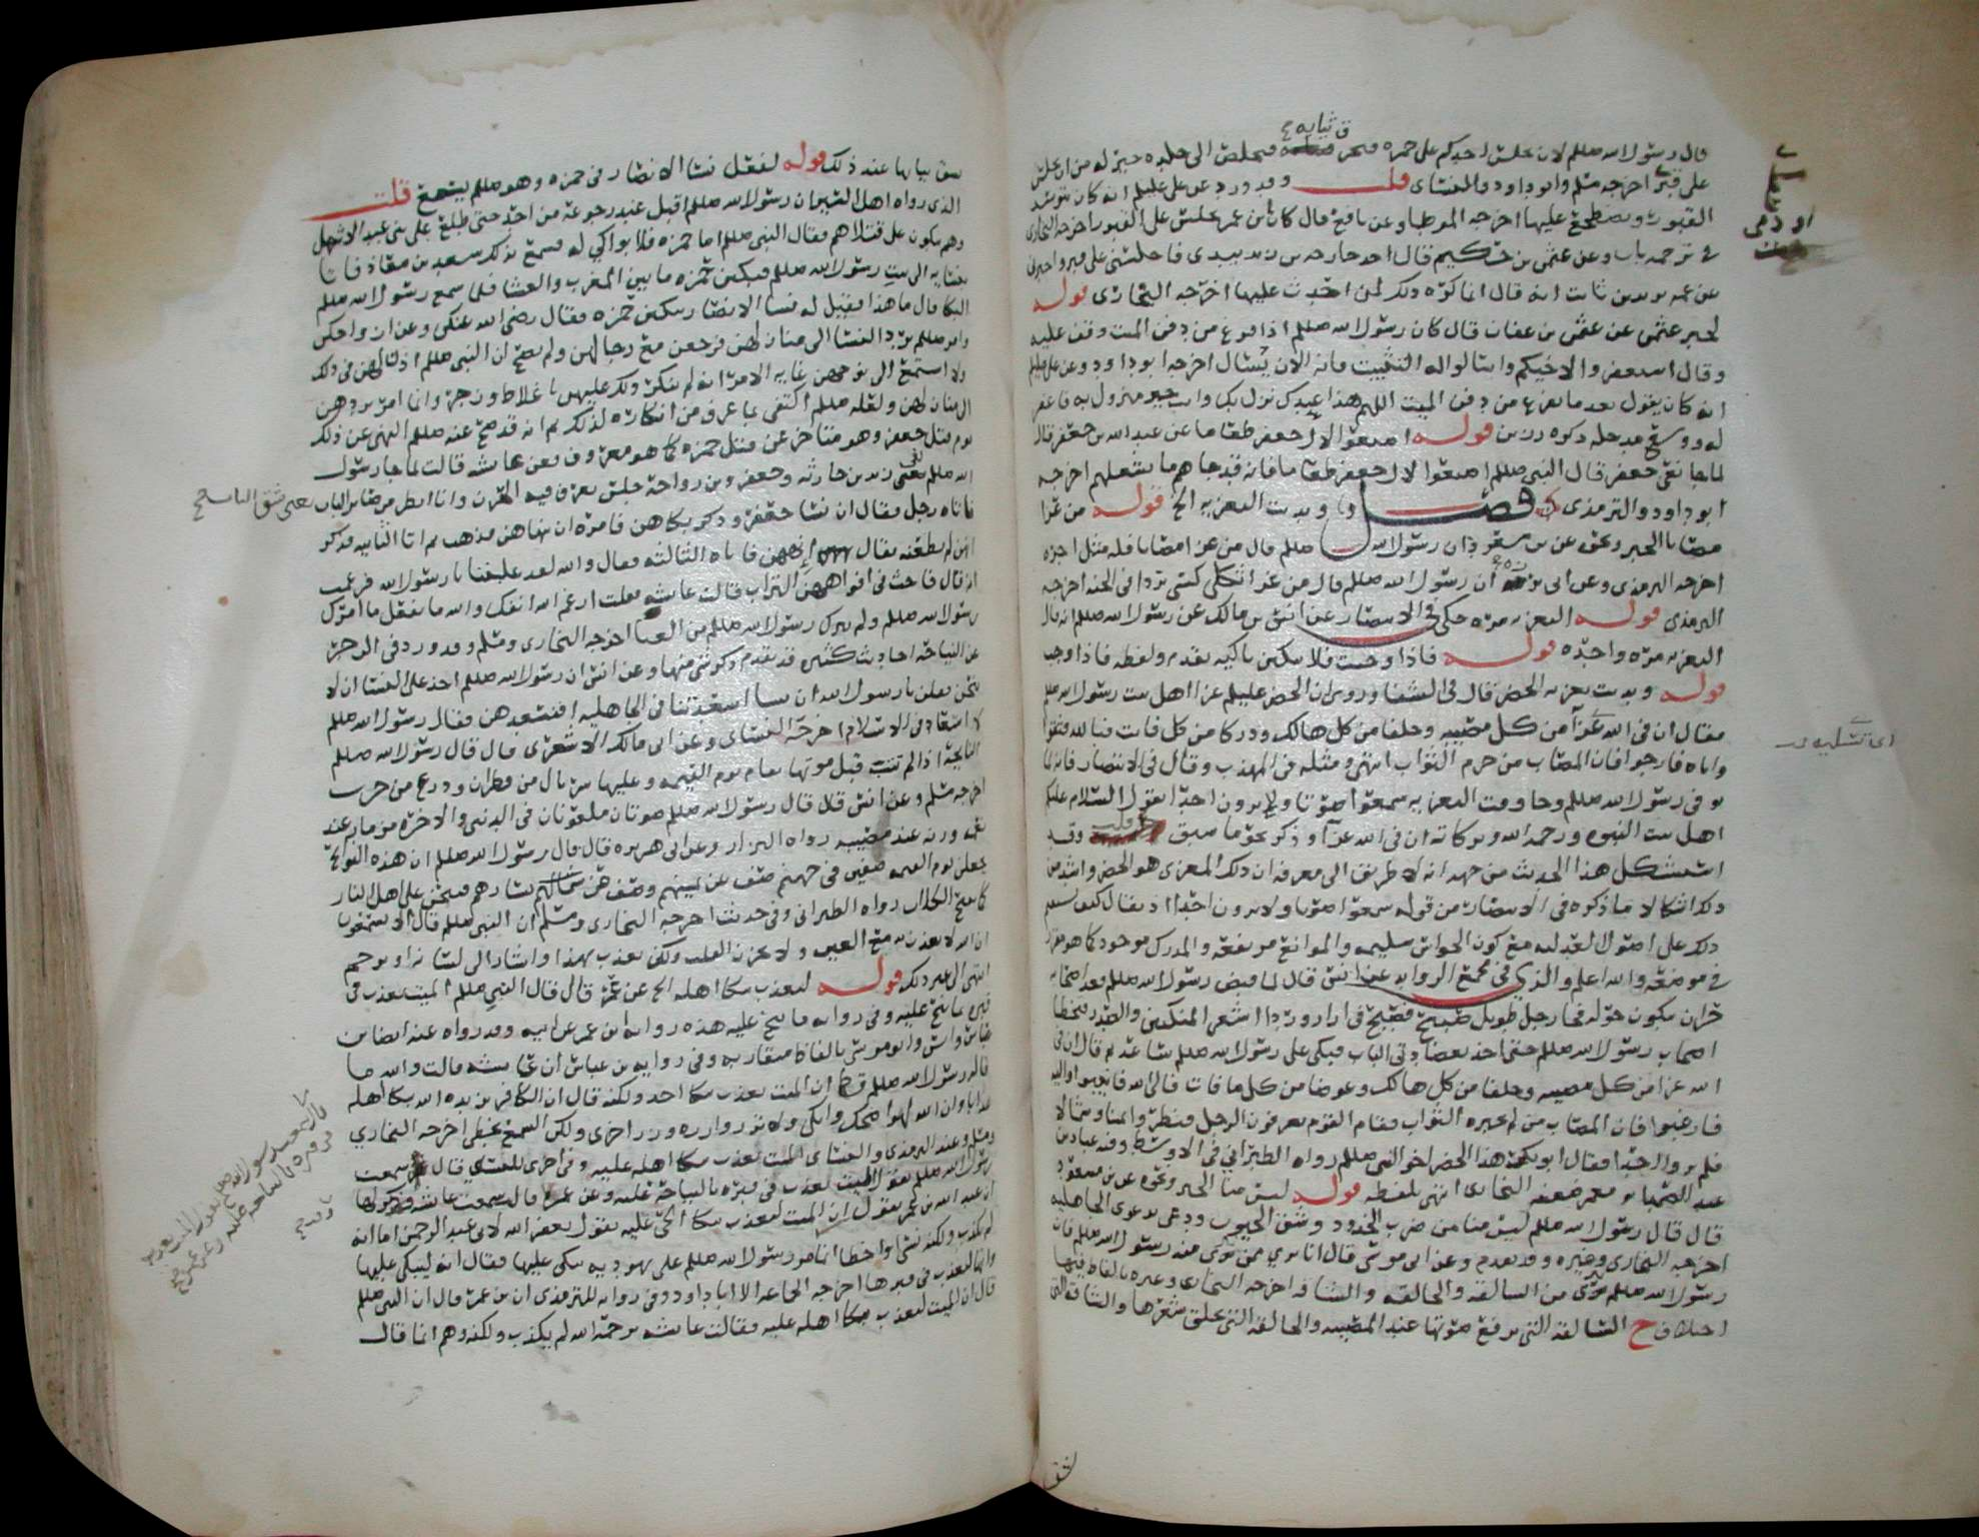 ثيابه
قال رسول الله صللم لان يجلس احدكم على جمره فتحرق فتخلص الى جلده خير له من ان يجلس
على قبر اخرجه مسلم وابو داود والنسائى قلت وقد ورد عن على عليلم انه كان يتوسد
القبور ويضطجع عليها اخرجه الموطا وعن نافع قال كان ابن عمر يجلس على القبور اخرجه البخارى
فى ترجمه باب وعن عثمن بن حكيم قال اخذ خارجه بن زيد بيدى فاجلسنى على قبر واخبرنى
عن عمه يزيد بن ثابت انه قال انما كره ذلك لمن احدث عليها اخرجه البخارى قوله
لخبر عثمن عن عثمن بن عفان قال كان رسول الله صللم اذا فرغ من دفن الميت وقف عليه
وقال استغفروا لاخيكم واسالوا له التثبيت فانه الان يسال اخرجه ابو داود وعن على عليلم
انه كان يقول بعد ما يفرغ من دفن الميت اللهم هذا عبدك نزل بك وانت خير منزول به فاغفر
له ووسع مدخله ذكره رزين قوله اصنعوا لال جعفر طعاما عن عبد الله بن جعفر قال
لما جا نعى جعفر قال النبى صللم اصنعوا لال جعفر طعاما فانه قد جاهم ما يشغلهم اخرجه
ابو داود والترمذى فصل وندبت التعزيه الخ قوله من عزا
مصابا الخبر ونحوه عن بن مسعود ان رسول الله صللم قال من عزا مصابا فله مثل اجره
اخرجه الترمذى وعن ابى برزه ان رسول الله صللم قال من عزا ثكلى كسى بردا فى الجنه اخرجه
الترمذى قوله التعزيه مره حكى فى الانتصار عن انس بن مالك عن رسول الله صللم انه قال
التعزيه مره واحده قوله فاذا وجبت فلا تبكين باكيه تقدم ولفظه فاذا وجب
قوله وندبت تعزيه الخضر قال فى الشفا وروى ان الخضر عليلم عزا اهل بيت رسول الله صللم
فقال ان فى الله عزا من كل مصيبه وخلفا من كل هالك ودركا من كل فايت فبالله فثقوا
واياه فارجوا فان المصاب من حرم الثواب انتهى ومثله فى المهذب وقال فى الانتصار فانه لما
توفى رسول الله صللم وجا وقت التعزيه سمعوا صوتا ولا يرون احدا يقول السلام عليكم
اهل بيت النبوه ورحمه الله وبركاته ان فى الله عزا وذكر نحو ما سبق قلت وقد
استشكل هذا الحديث من جهه انه لا طريق الى معرفه ان ذلك المعزى هو الخضر واشد من
ذلك اشكالا ما ذكره فى الانتصار من قوله سمعوا صوتا ولا يرون احدا اذ يقال كيف
ذلك على اصول العدليه مع كون الحواس سليمه والموانع مرتفعه والمدرك موجود كما هو مقرر
فى موضعه والله اعلم والذى فى مجمع الزوايد عن انس قال لما قبض رسول الله صللم قعد اصحابه
حزان يبكون حوله فجا رجل طويل صبيح فصيح فى ازار وردا اشعر المنكبين والصدر يتخطا
اصحاب رسول الله صللم حتى اخذ بعضادتى الباب فبكى على رسول الله صللم ساعه ثم قال ان فى
الله عزا من كل مصيبه وخلفا من كل هالك وعوضا من كل ما فات فالى الله فانيبوا واليه
فارغبوا فان المصاب من لم يجبره الثواب فقام القوم يعرفون الرجل فنظروا يمنا وشمالا
فلم يروا احدا فقال ابو بكر هذا الخضر اخو النبى صللم رواه الطبرانى فى الاوسط وفيه عباد بن
عبد الصمد ابو معمر ضعفه البخارى انتهى بلفظه قوله ليس منا الخبر ونحوه عن بن مسعود
قال قال رسول الله صللم ليس منا من ضرب الخدود وشق الجيوب ودعى بدعوى الجاهليه
اخرجه البخارى وغيره وقد تقدم وعن ابى موسى قال انا برى ممن برى منه رسول الله صللم فان
رسول الله صللم برى من السالقه والحالقه والشاقه اخرجه البخارى وغيره بالفاظ فيها
اختلاف ح السالقه التى ترفع صوتها عند المصيبه والحالقه التى تحلق شعرها والشاقه التى
اى تسليه
تشق
سبق بيانها عند ذلك قوله لفعل نسا الانصار فى حمزه وهو صللم يسمع قلت
الذى رواه اهل السير ان رسول الله صللم اقبل عند رجوعه من احد حتى طلع على بنى عبد الاشهل
وهم يبكون على قتلاهم فقال النبى صللم اما حمزه فلا بواكى له فسمع ذلك سعد بن معاذ فاتا
بنسايه الى بيت رسول الله صللم فبكين حمزه ما بين المغرب والعشا فلما سمع رسول الله صللم
البكا قال ما هذا فقيل له نسا الانصار يبكين حمزه فقال رضى الله عنكن وعن اولادكن
وامر صللم برد النسا الى منازلهن فرجعن مع رجالهن ولم يصح ان النبى صللم اذن لهن فى ذلك
ولا استمع الى نوحهن غايه الامر انه لم ينكر ذلك عليهن باغلاظ وزجر وانما امر بردهن
الى منازلهن ولعله صللم اكتفى بما عرف من انكاره لذلك ثم انه قد صح عنه صللم النهى عن ذلك
يوم قتل جعفر وهو متاخر عن قتل حمزه كما هو معروف فعن عايشه قالت لما جا رسول
الله صللم نعى زيد بن حارثه وجعفر وبن رواحه جلس يعرف فيه الحزن وانا انظر من صاير الباب تعنى شق الباب
فاتاه رجل فقال ان نسا جعفر وذكر بكاهن فامره ان ينهاهن فذهب ثم اتا الثانيه فذكر
انهن لم يطعنه فقال انههن فاتاه الثالثه فقال والله لقد غلبننا يا رسول الله فزعمت
انه قال فاحث فى افواههن التراب قالت عايشه فقلت ارغم الله انفك والله ما تفعل ما امرك
رسول الله صللم ولم تترك رسول الله صللم من العنا اخرجه البخارى ومسلم وقد ورد فى الزجر
عن النياحه احاديث كثيره قد تقدم ذكر شى منها وعن انس ان رسول الله صللم اخذ على النسا ان لا
ينحن فقلن يا رسول الله ان نسا اسعدننا فى الجاهليه افنسعدهن فقال رسول الله صللم
لا اسعاد فى الاسلام اخرجه النسائى وعن ابى مالك الاشعرى قال قال رسول الله صللم
النايحه اذا لم تتب قبل موتها تقام يوم القيمه وعليها سربال من قطران ودرع من جرب
اخرجه مسلم وعن انس قال قال رسول الله صللم صوتان ملعونان فى الدنيا والاخره مزمار عند
نعمه ورنه عند مصيبه رواه البزار وعن ابى هريره قال قال رسول الله صللم ان هذه النوايح
يجعلن يوم القيمه صفين فى جهنم صف عن يمينهم وصف عن شمالهم فينبحن على اهل النار
كما تنبح الكلاب رواه الطبرانى وفى حديث اخرجه البخارى ومسلم ان النبى صللم قال الا تسمعون
ان الله لا يعذب بدمع العين ولا بحزن القلب ولكن يعذب بهذا واشار الى لسانه او يرحم
انتهى الى غير ذلك قوله ليعذب ببكا اهله الخ عن عمر قال قال النبى صللم الميت يعذب فى
قبره بما نيح عليه وفى روايه ما نيح عليه هذه روايه بن عمر عن ابيه وقد رواه عنه ايضا بن
عباس وانس وابو موسى بالفاظ متقاربه وفى روايه بن عباس ان عايشه قالت والله ما
قال رسول الله صللم قط ان الميت يعذب ببكا احد ولكنه قال ان الكافر يزيده الله ببكا اهله
عذابا وان الله لهو اضحك وابكى ولا تزر وازره وزر اخرى ولكن السمع يخطى اخرجه البخارى
ومسلم وعند الترمذى والنسائى الميت يعذب ببكا اهله عليه وفى اخرى للنسائى قال سمعت
رسول الله صللم يقول الميت يعذب فى قبره بالنياحه عليه وعن عمره قال سمعت عايشه وذكر لها
ان عبد الله بن عمر يقول ان الميت ليعذب ببكا الحى عليه تقول يغفر الله لابى عبد الرحمن اما انه
لم يكذب ولكنه نسى او اخطا انما مر رسول الله صللم على يهوديه يبكى عليها فقال انه ليبكى عليها
وانها لتعذب فى قبرها اخرجه الجماعه الا ابا داود وفى روايه للترمذى ان بن عمر قال ان النبى صللم
قال ان الميت ليعذب ببكا اهله عليه فقالت عايشه يرحمه الله لم يكذب ولكنه وهم انما قال